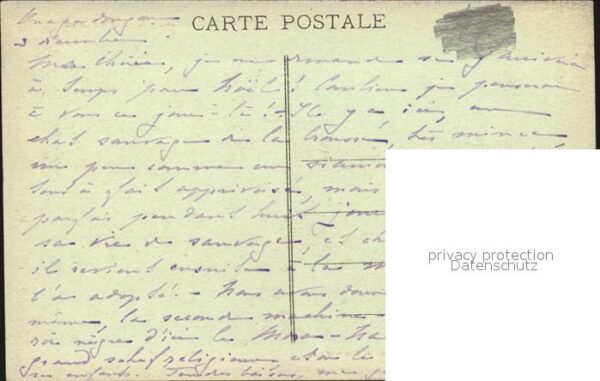 CARTE POSTALE
3 décembre
Ma chérie, je me demande si j'arriverai
à temps pour Noël ! Combien je penserai
à vous ce jour-là ! - Il y a ici un
chat sauvage de la brousse, très mince
un peu comme un siamois
tout à fait apprivoisé, mais
parfois pendant huit jours
sa vie de sauvage, et
il revient ensuite à la
l'a adopté. - Nous avons
même, la seconde machine
roi nègre d'ici le Moro-Naba
grand chef religieux et
ses enfants. Tendres baisers, mes
privacy protection
Datenschutz